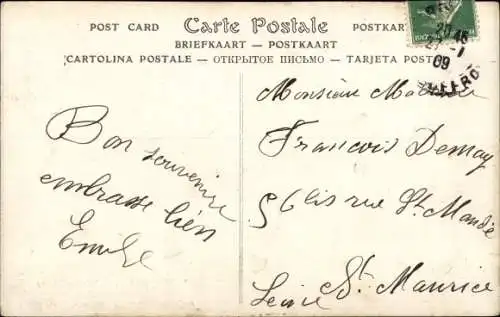 POST CARD Carte Postale POSTKAR
BRIEFKAART — POSTKAART
CARTOLINA POSTALE — ОТКРЫТОЕ ПИСЬМО — TARJETA POST
Bon souvenir
embrasse bien
Emile
Monsieur
François Demay
56 bis rue St Mandé
St. Maurice
Seine
09